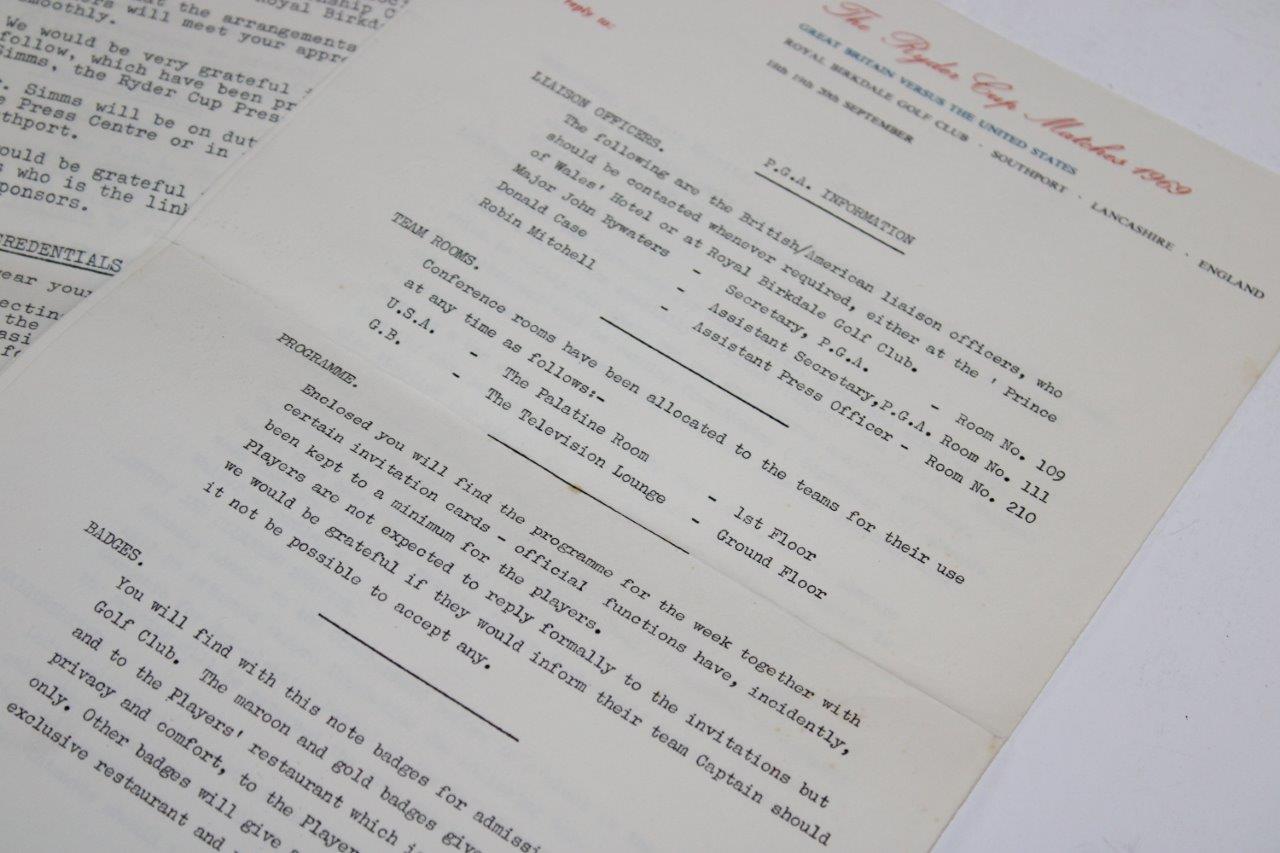 nship C
Royal Birkd
at the arrangements
rs will meet your appr
moothly.
We would be very grateful
follow, which have been pr
Simms, the Ryder Cup Pres
. Simms will be on dut
e Press Centre or in
thport.
ould be grateful
s who is the link
ponsors.
CREDENTIALS
ear your
ecting
the
asi
fo
reply to:
The Ryder Cup Matches 1969
GREAT BRITAIN VERSUS THE UNITED STATES
ROYAL BIRKDALE GOLF CLUB · SOUTHPORT · LANCASHIRE · ENGLAND
18th 19th 20th SEPTEMBER
P.G.A. INFORMATION
LIAISON OFFICERS.
The following are the British/American liaison officers, who
should be contacted whenever required, either at the ' Prince
of Wales' Hotel or at Royal Birkdale Golf Club.
Major John Bywaters - Secretary, P.G.A. - Room No. 109
Donald Case - Assistant Secretary,P.G.A. Room No. 111
Robin Mitchell - Assistant Press Officer - Room No. 210
TEAM ROOMS.
Conference rooms have been allocated to the teams for their use
at any time as follows:-
U.S.A. - The Palatine Room - 1st Floor
G.B. - The Television Lounge - Ground Floor
PROGRAMME.
Enclosed you will find the programme for the week together with
certain invitation cards - official functions have, incidently,
been kept to a minimum for the players.
Players are not expected to reply formally to the invitations but
we would be grateful if they would inform their team Captain should
it not be possible to accept any.
BADGES.
You will find with this note badges for admissi
Golf Club. The maroon and gold badges give
and to the Players' restaurant which i
privacy and comfort, to the Player
only. Other badges will give
exclusive restaurant and